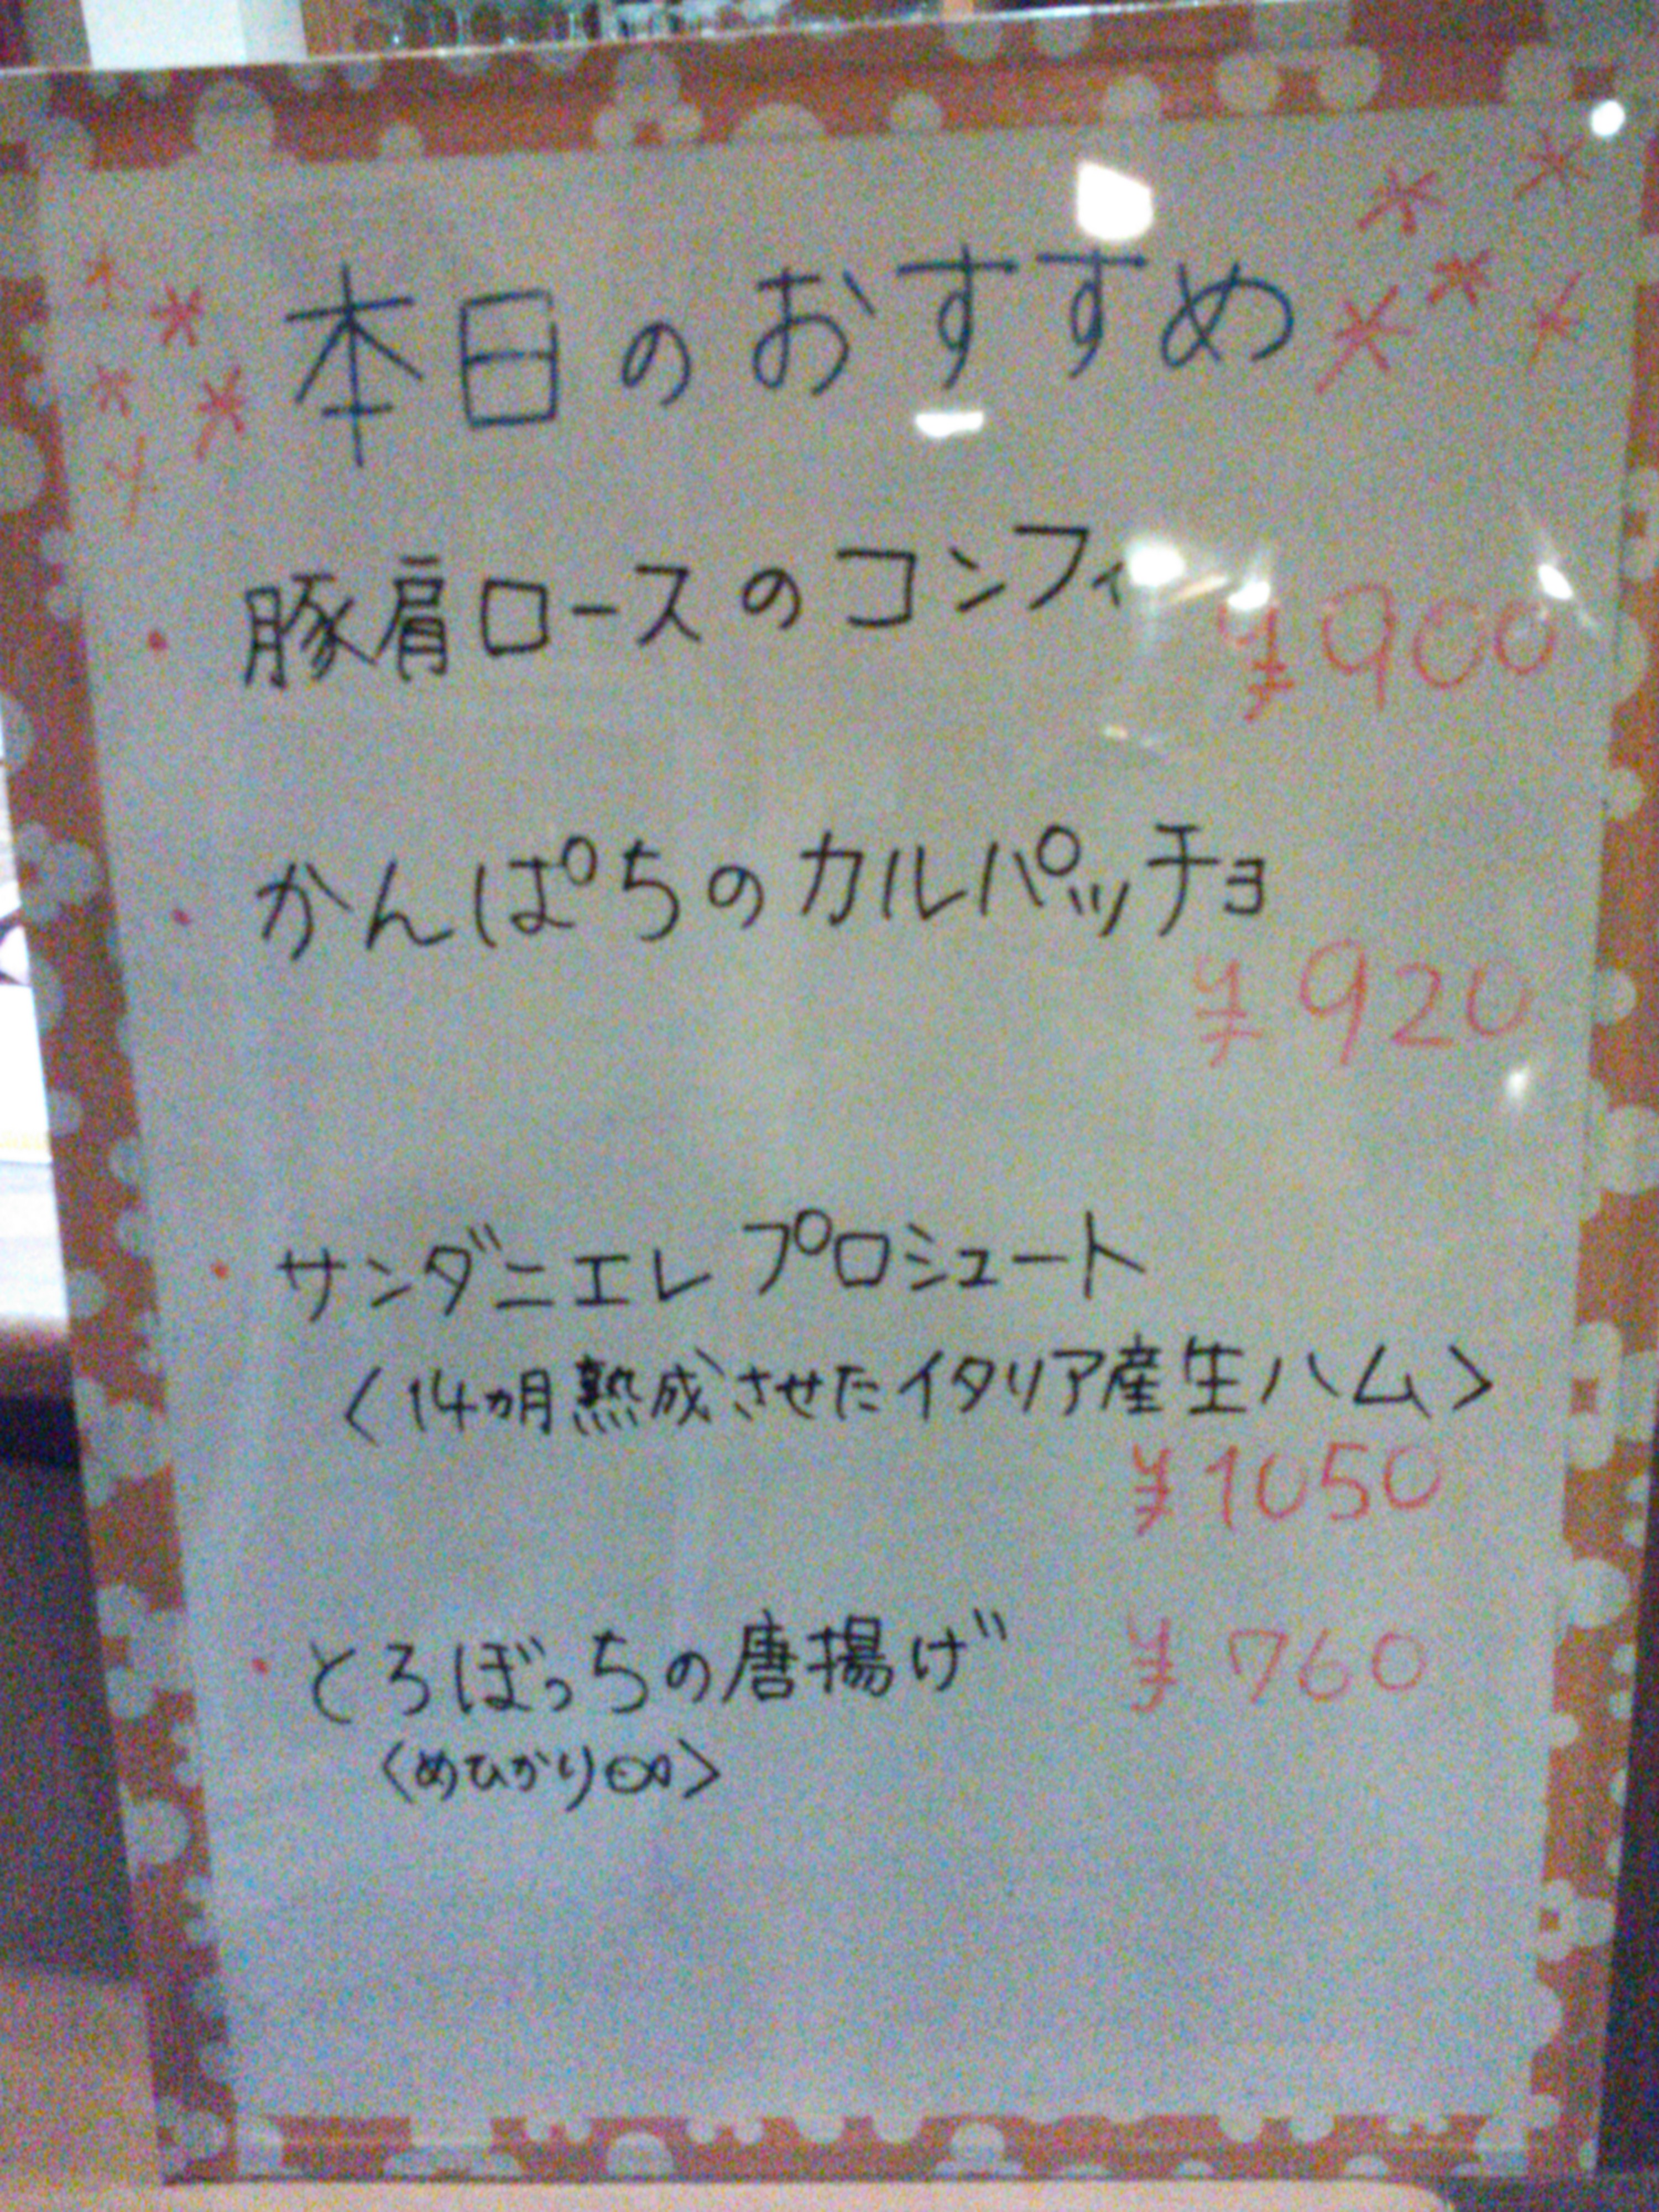 本日のおすすめ
・豚肩ロースのコンフィ ¥900
・かんぱちのカルパッチョ
¥920
・サンダニエレ プロシュート
〈14ヵ月熟成させたイタリア産生ハム〉
¥1050
・とろぼっちの唐揚げ ¥760
〈めひかり∞〉